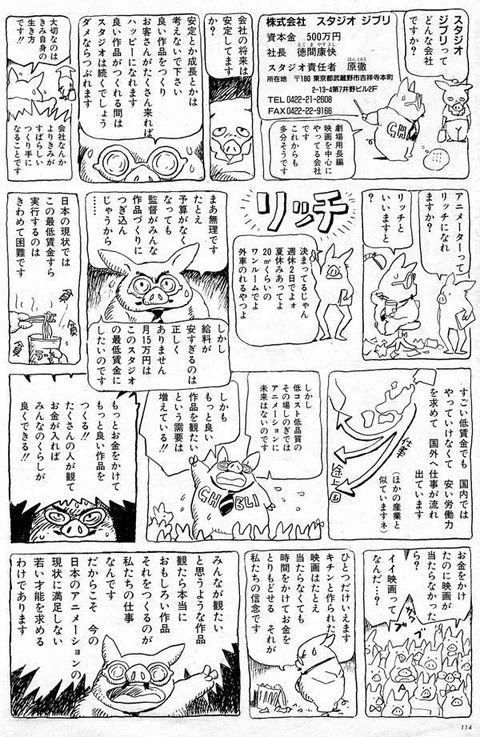 スタジオ
ジブリって
どんな会社
ですか?
株式会社 スタジオ ジブリ
資本金 500万円
社長 徳間康快
とくまやすよし
スタジオ責任者 原徹
はらとおる
所在地 〒180 東京都武蔵野市吉祥寺本町
2-13-4第7井野ビル2F
TEL 0422-21-2608
FAX 0422-22-9166
劇場用長編
映画を中心に
やってる会社
これからも
多分そうです
GHI
会社の将来は
安定してますか?
安定とか成長とかは
考えないで下さい
良い作品をつくり
お客さんがたくさん来れば
ハッピーになれます
良い作品がつくれる間は
スタジオは続くでしょう
ダメならつぶれます
大切なのは
きみ自身の
生き方
です!!
会社なんか
よりきみが
すばらしい
つくり手に
なることです
アニメーターって
リッチになれ
ますか?
リッチと
いいますと
?
リッチ
決まってるじゃん
週休2日でよォ
夏休みあってよ
20㎡くらいの
ワンルームでよ
外車のれるやつよ
まあ無理です
たとえ
予算がなく
なっても
監督がみんな
作品づくりに
つぎ込ん
じゃうから
……
しかし
給料が
安すぎるのは
正しく
ありません
月15万円は
このスタジオ
の最低賃金に
したいのです
日本の現状では
この最低賃金すら
実行するのは
きわめて困難です
すごい低賃金でも 国内では
やっていけなくて 安い労働力
を求めて 国外へ仕事が流れ
出ています
(ほかの産業と
似ていますネ)
仕事
しかし
低コスト低品質の
その場しのぎでは
アニメーションに
未来はないのです
しかも
もっと良い
作品を観たい
という需要は
増えている!!
GHIBLI
もっとお金をかけて
もっと良い作品を
つくる!!
たくさんの人が観て
お金が入れば
みんなのくらしが
良くできる!!
お金をかけ
たのに映画が
当たらなかった
ら?
イイ映画って
なんだ…?
ひとつだけいえます
キチンと作られた
映画はたとえ
当たらなくても
時間をかけてお金を
とりもどせる それが
私たちの信念です
みんなが観たい
と思うような作品
観たら本当に
おもしろい作品
それをつくるのが
私たちの仕事
なんです
だからこそ 今の
日本のアニメーションの
現状に満足しない
若い才能を求める
わけであります
114